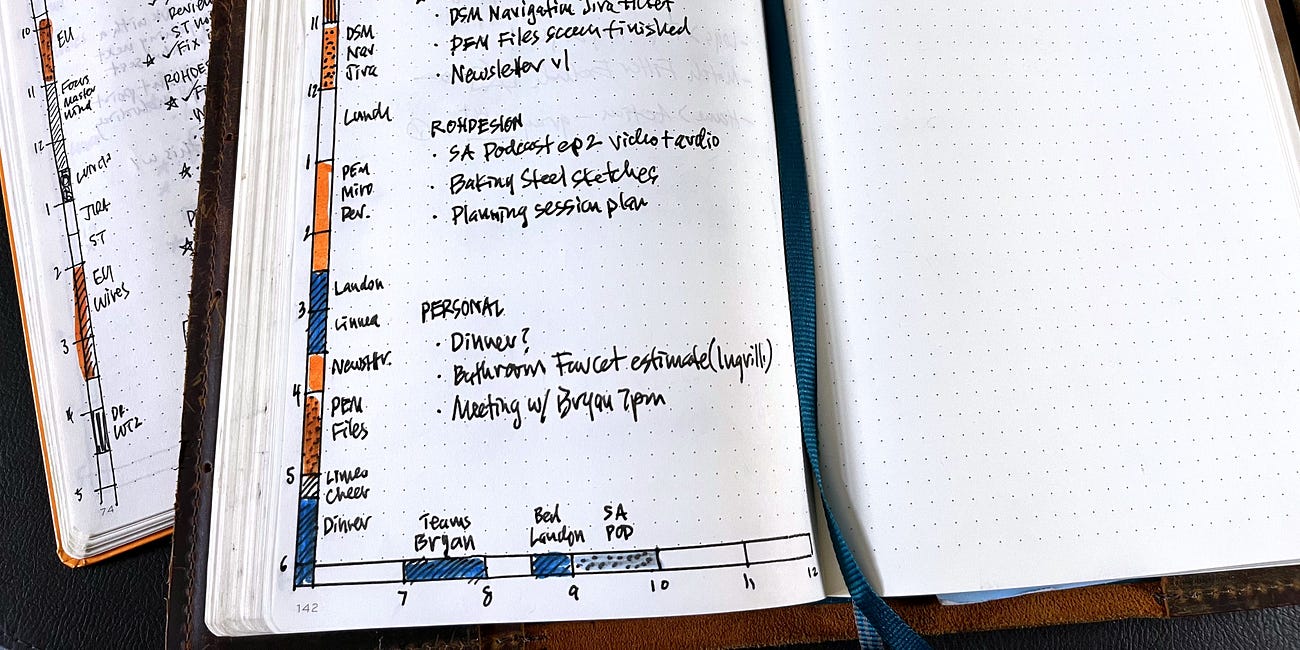 10
EU
11
Focus
Master
mind
12
Lunch
1
JIRA
ST
2
EUI
Wires
3
4
DR.
WTZ
5
74
Review
ST
Fix
ROHDES
11
DSM
Nav
Jira
12
Lunch
1
PEM
Miro
Rev.
2
Landon
3
Linnea
Newsltr.
4
PEM
Files
5
Linea
Cheer
Dinner
6
· DSM Navigation Jira ticket
· PEM Files screen finished
· Newsletter v1
ROHDESIGN
· SA Podcast ep 2 video + audio
· Baking Steel sketches
· Planning session plan
PERSONAL
· Dinner?
· Bathroom Faucet estimate (Ingvilli)
· Meeting w/ Bryan 7pm
Teams
Bryan
Bed
Landon
SA
POD
7 8 9 10 11 12
142